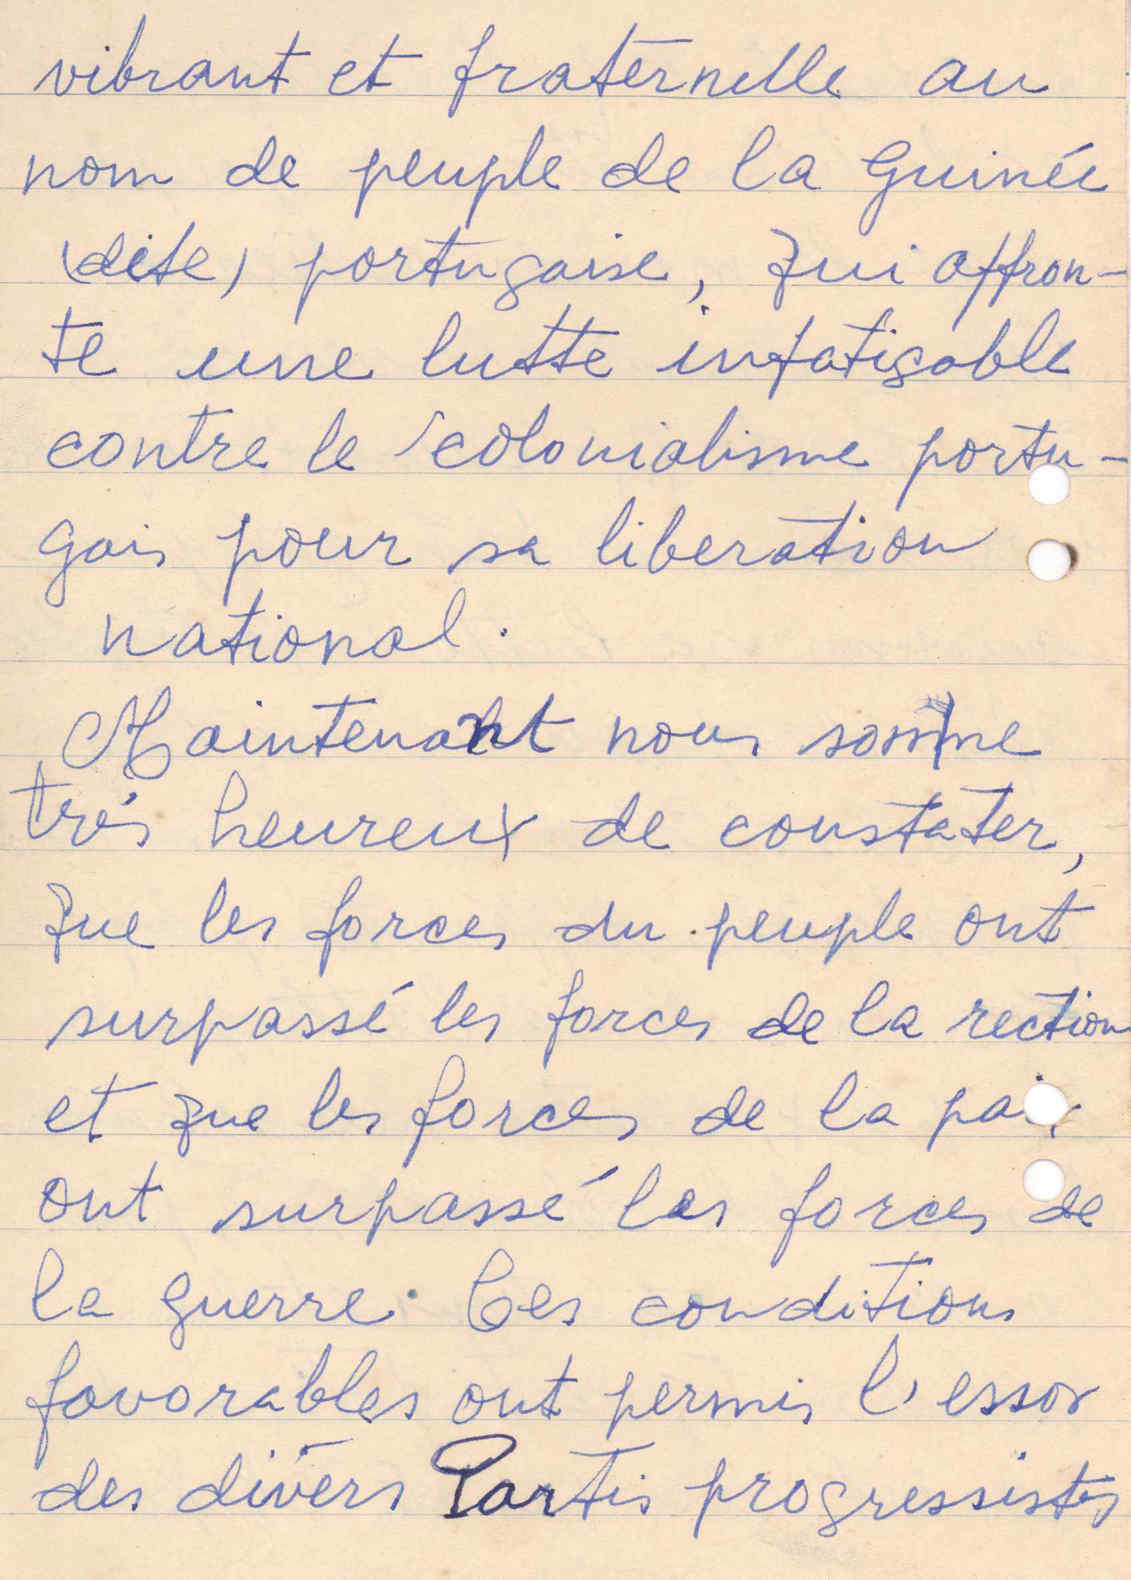 vibrant et fraternelle au
nom de peuple de la Guinée
(dite) portugaise, qui affron-
te une lutte infatigable
contre le colonialisme portu-
gais pour sa liberation
national.
Maintenant nous somme
trés heureux de constater,
que les forces du peuple ont
surpassé les forces de la rection
et que les forces de la paix
ont surpassé les forces de
la guerre. Ces conditions
favorables ont permis l'essor
des divers Partis progressistes